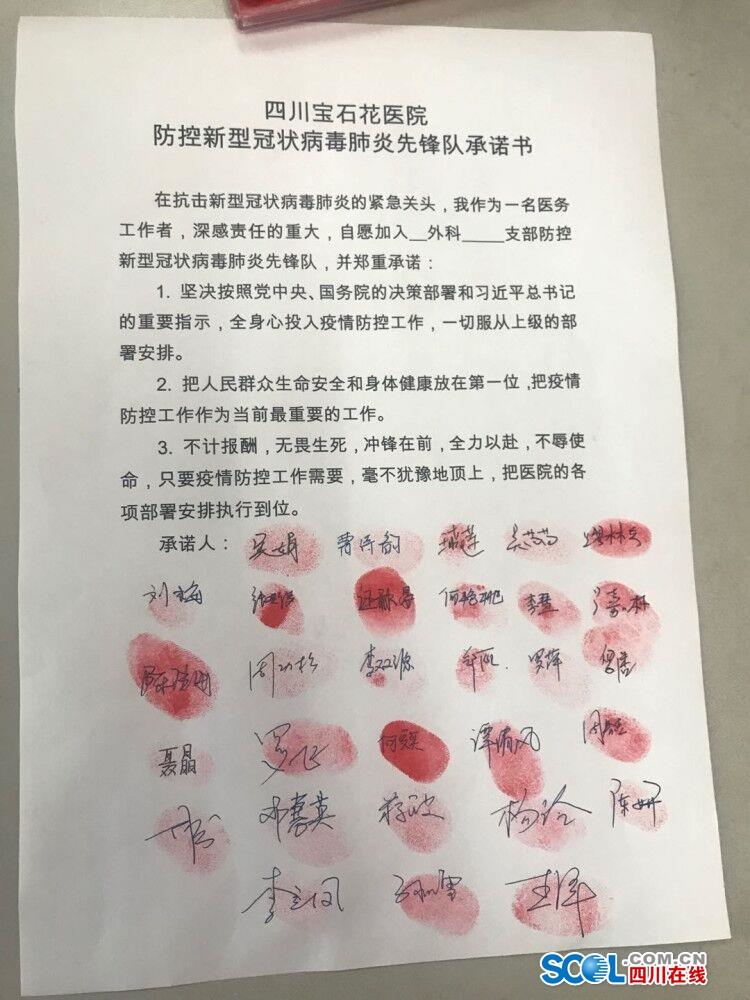 四川宝石花医院
防控新型冠状病毒肺炎先锋队承诺书
在抗击新型冠状病毒肺炎的紧急关头，我作为一名医务
工作者，深感责任的重大，自愿加入__外科_____支部防控
新型冠状病毒肺炎先锋队，并郑重承诺：
1. 坚决按照党中央、国务院的决策部署和习近平总书记
的重要指示，全身心投入疫情防控工作，一切服从上级的部
署安排。
2. 把人民群众生命安全和身体健康放在第一位,把疫情
防控工作作为当前最重要的工作。
3. 不计报酬，无畏生死，冲锋在前，全力以赴，不辱使
命，只要疫情防控工作需要，毫不犹豫地顶上，把医院的各
项部署安排执行到位。
承诺人： 吴娟
刘梅 李双源 罗萍
聂晶 罗飞 谭清风
邓嘉英 蒋波 杨玲 陈妍
李立凤 王洋
SCOL.COM.CN
四川在线